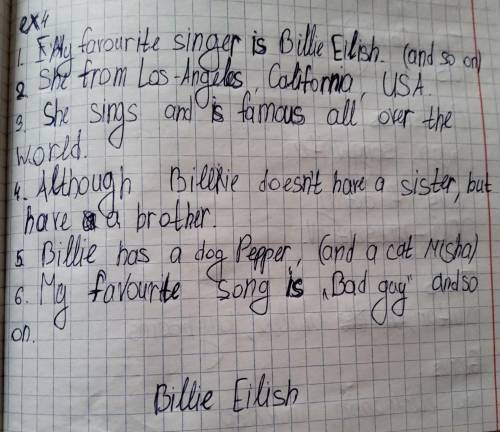 ex4
1. My favourite singer is Billie Eilish. (and so on)
2. She from Los-Angeles, California, USA.
3. She sings and is famous all over the
world.
4. Although Billie doesn't have a sister, but
have a brother.
5. Billie has a dog Pepper, (and a cat Misha)
6. My favourite song is „Bad guy" and so
on.
Billie Eilish